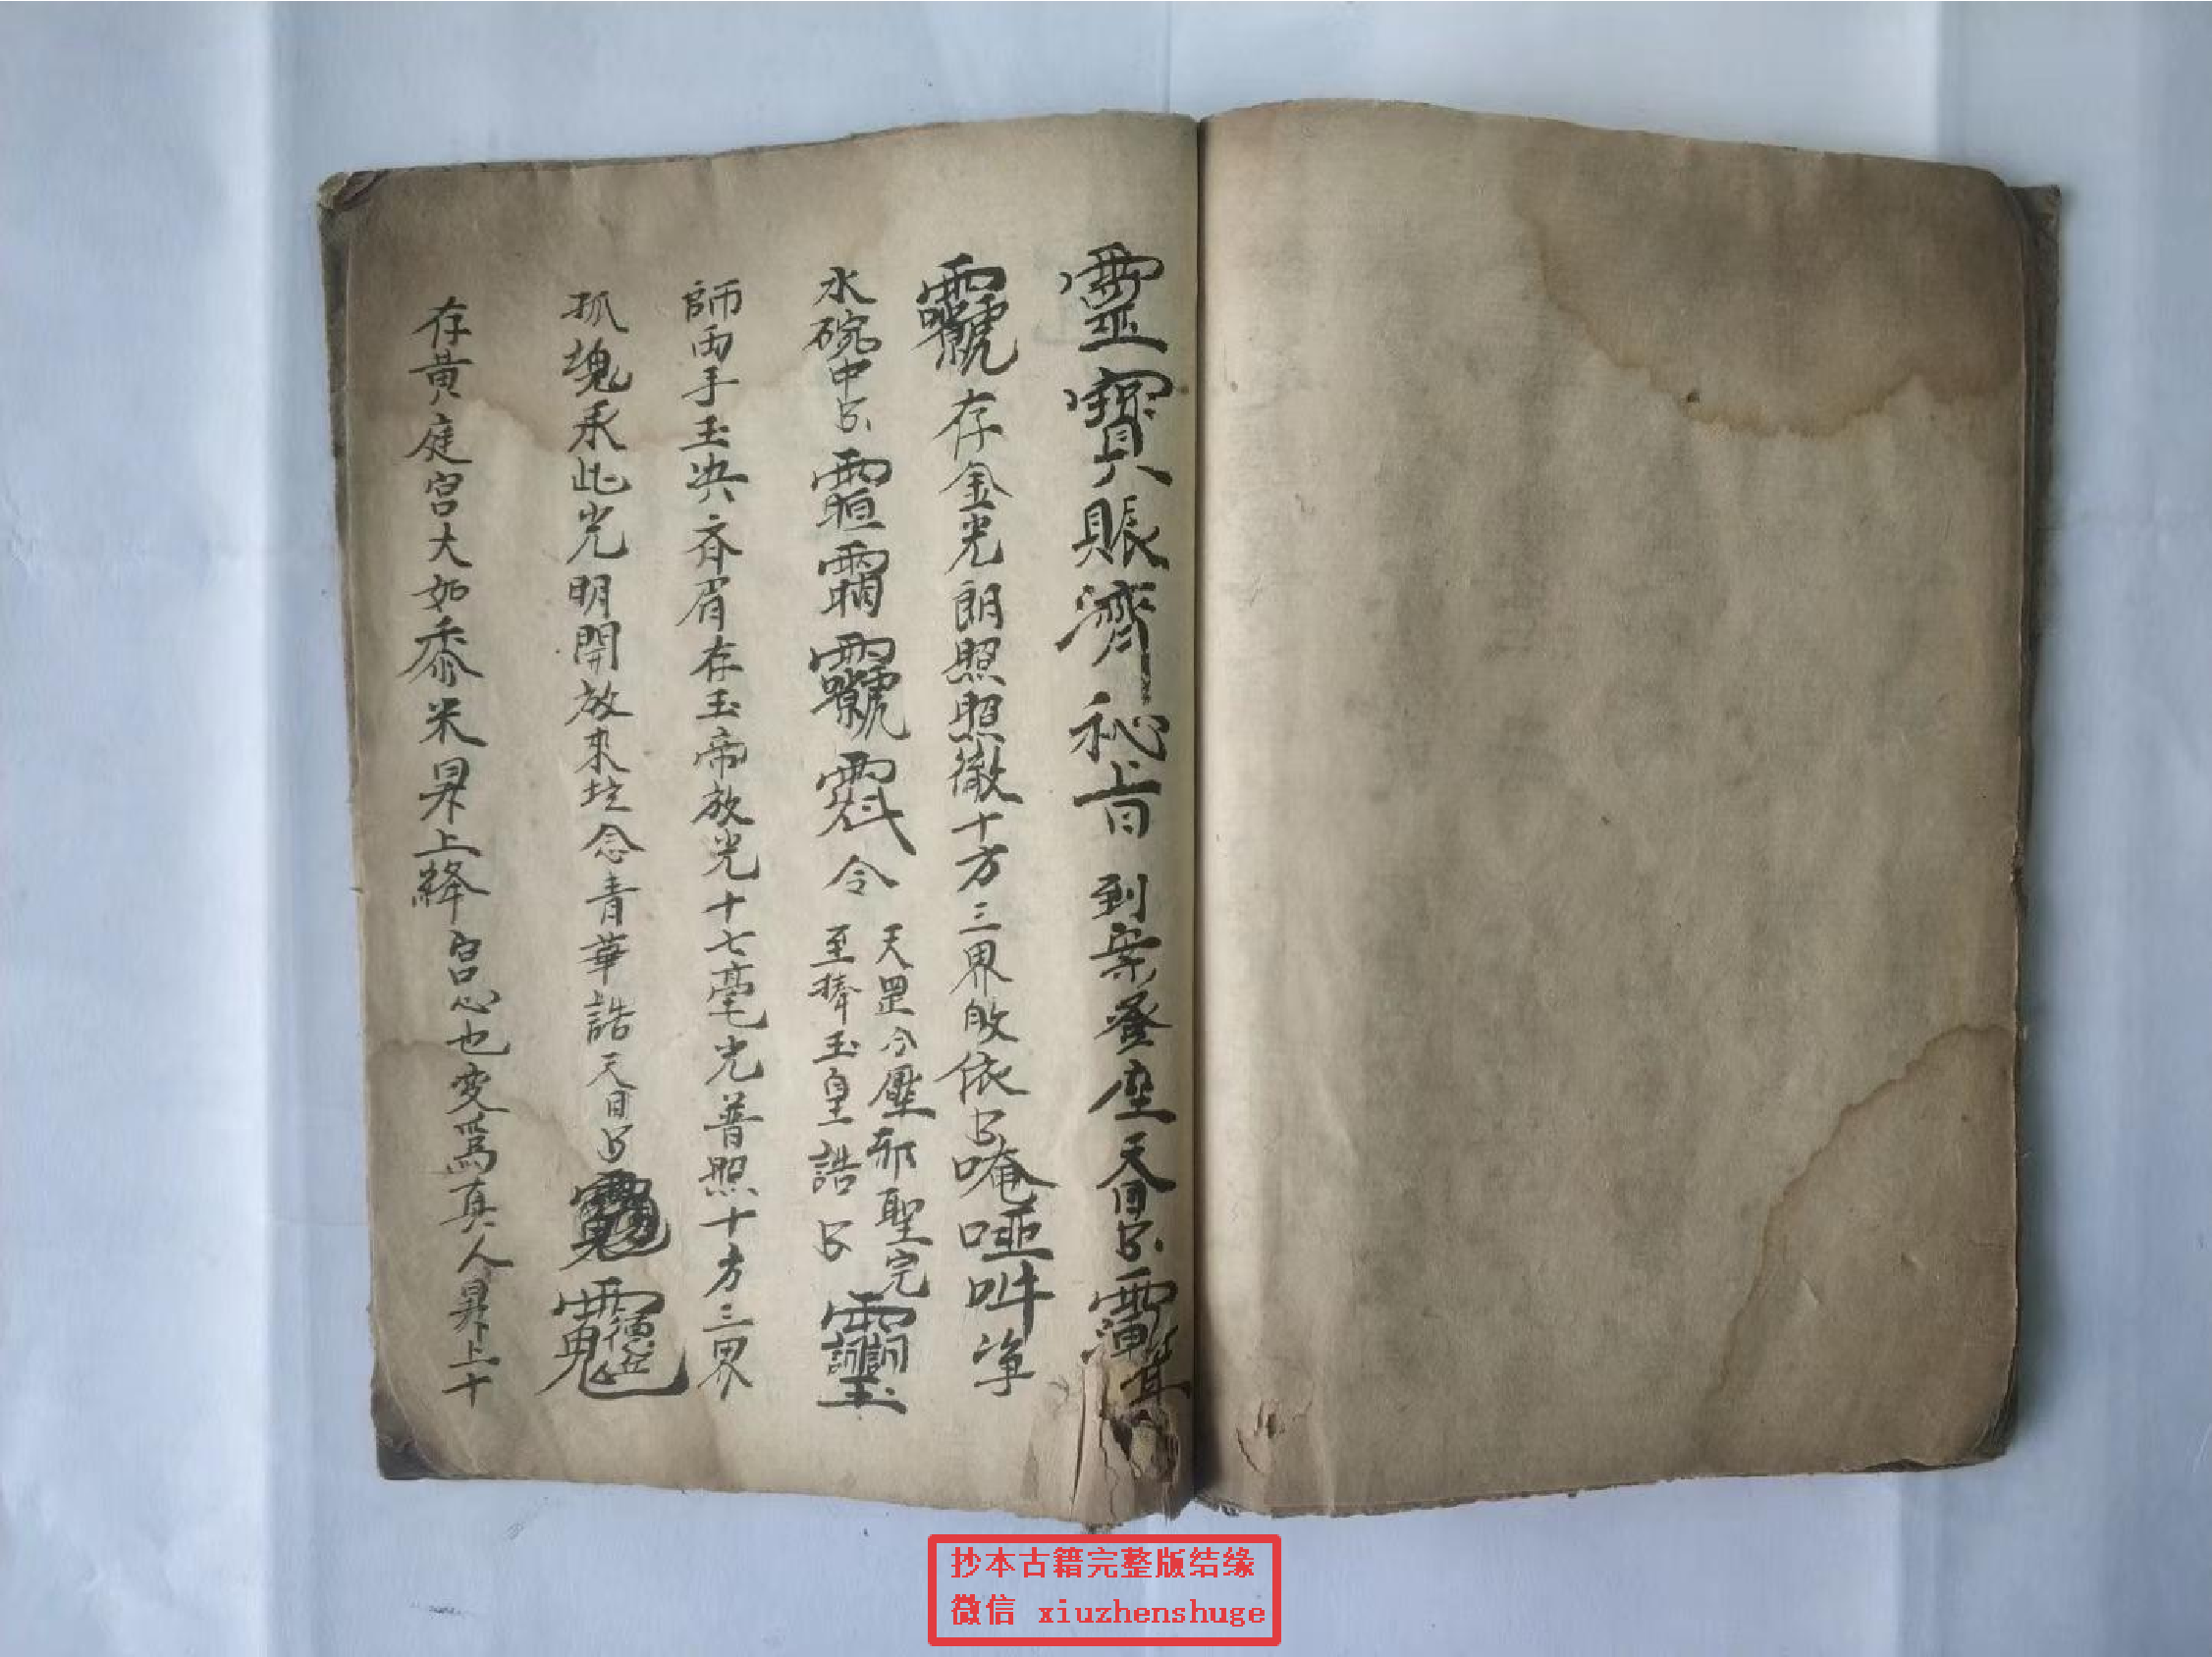 靈寶賬濟秘旨 到案登座天目
存金光朗照照徹十方三界敗依 唵啞吽
水碗中 令
天罡令壓邪聖完
至捧玉皇誥
師兩手玉央齐眉存玉帝放光十七毫光普照十方三界
孤魂承此光明開放來坛念青華誥天目
存黄庭宫大如黍米昇上絳宫心也变爲真人昇上十
抄本古籍完整版结缘
微信 xiuzhenshuge